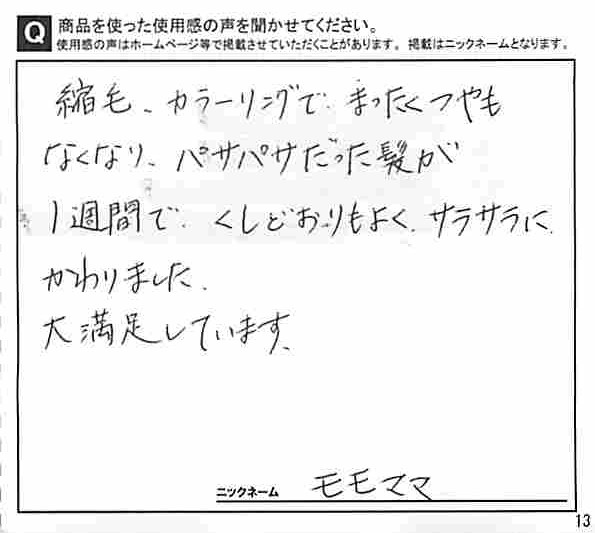 Q 商品を使った使用感の声を聞かせてください。
使用感の声はホームページ等で掲載させていただくことがあります。 掲載はニックネームとなります。
縮毛、カラーリングで、まったくつやも
なくなり、パサパサだった髪が
1週間で、くしどおりもよく、サラサラに
かわりました。
大満足しています。
ニックネーム モモママ
13